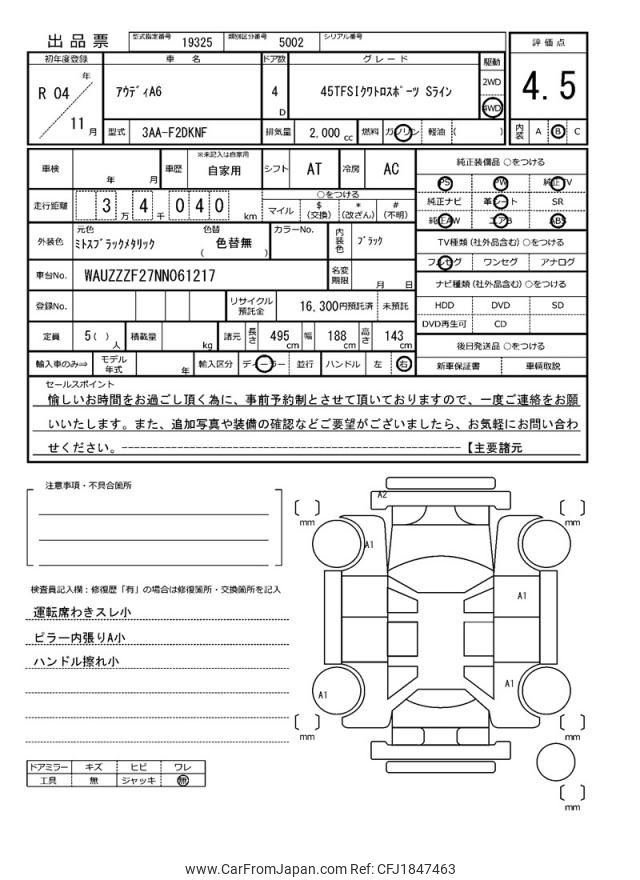 出品票 型式指定番号 19325 類別区分番号 5002 シリアル番号
評価点
4.5
内装 A B C
初年度登録 車名 ドア数 グレード 駆動
R 04 年 11 月 アウディA6 4 D 45TFSIクワトロスポーツ Sライン 2WD 4WD
型式 3AA-F2DKNF 排気量 2,000 cc 燃料 ガソリン 軽油 ( )
車検 年 月 車歴 ※未記入は自家用 自家用 シフト AT 冷房 AC
走行距離 3 万 4 千 0 4 0 km ○をつける
マイル $ (交換) * (改ざん) # (不明)
外装色 元色 ミトスブラックメタリック 色替 色替無 ( ) カラーNo. 内装色 ブラック
車台No. WAUZZZF27NN061217 名変期限 月 日
登録No. リサイクル預託金 16,300円預託済 未預託
定員 5( ) 人 積載量 kg 諸元 長さ 495 cm 幅 188 cm 高さ 143 cm
輸入車のみ⇒ モデル年式 年 輸入区分 ディーラー 並行 ハンドル 左 右
純正装備品 ○をつける
PS PW 純正TV
純正ナビ 革シート SR
純正AW エアB ABS
TV種類(社外品含む)○をつける
フルセグ ワンセグ アナログ
ナビ種類(社外品含む)○をつける
HDD DVD SD
DVD再生可 CD
後日発送品 ○をつける
新車保証書 車輌取説
セールスポイント
愉しいお時間をお過ごし頂く為に、事前予約制とさせて頂いておりますので、一度ご連絡をお願
いいたします。また、追加写真や装備の確認などご要望がございましたら、お気軽にお問い合わ
せください。--------------------------------------------------【主要諸元
注意事項・不具合箇所
検査員記入欄:修復歴「有」の場合は修復箇所・交換箇所を記入
運転席わきスレ小
ピラー内張りA小
ハンドル擦れ小
ドアミラー キズ ヒビ ワレ
工具 無 ジャッキ 無
A2
[ ] mm
[ ] mm
A1
A1
A1
A1
[ ] mm
[ ] mm
[ ] mm
www.CarFromJapan.com Ref: CFJ1847463